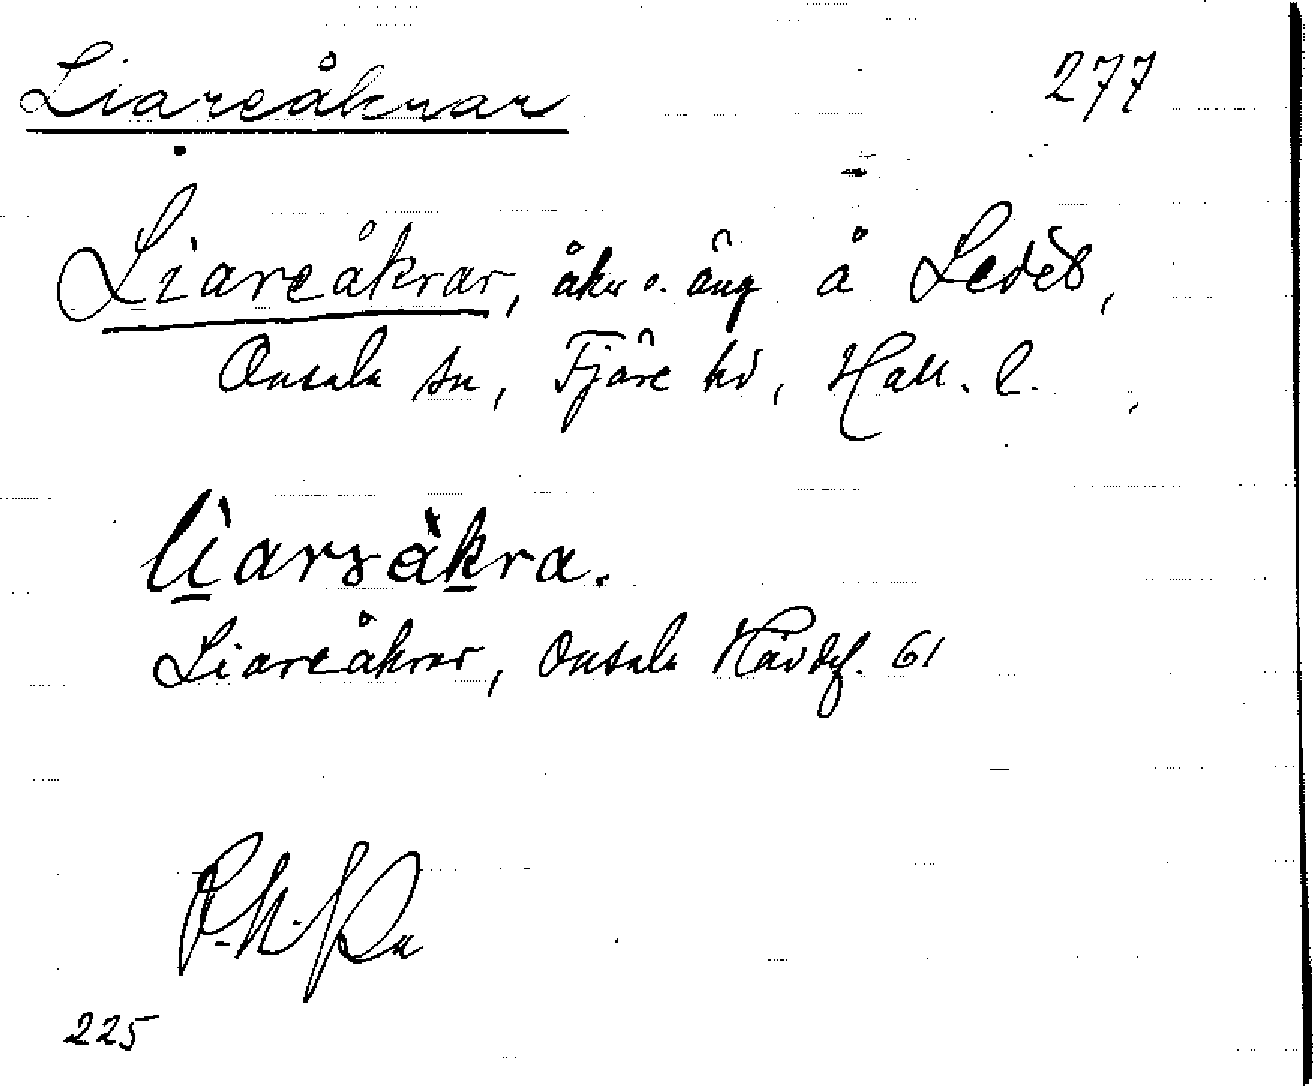 Liareåkrar 277
Liareåkrar, åkr o. äng å Ledet,
Onsala sn, Fjäre hd, Hall. l.
liarsåkra.
Liareåkrar, Onsala Hävdef. 61
225